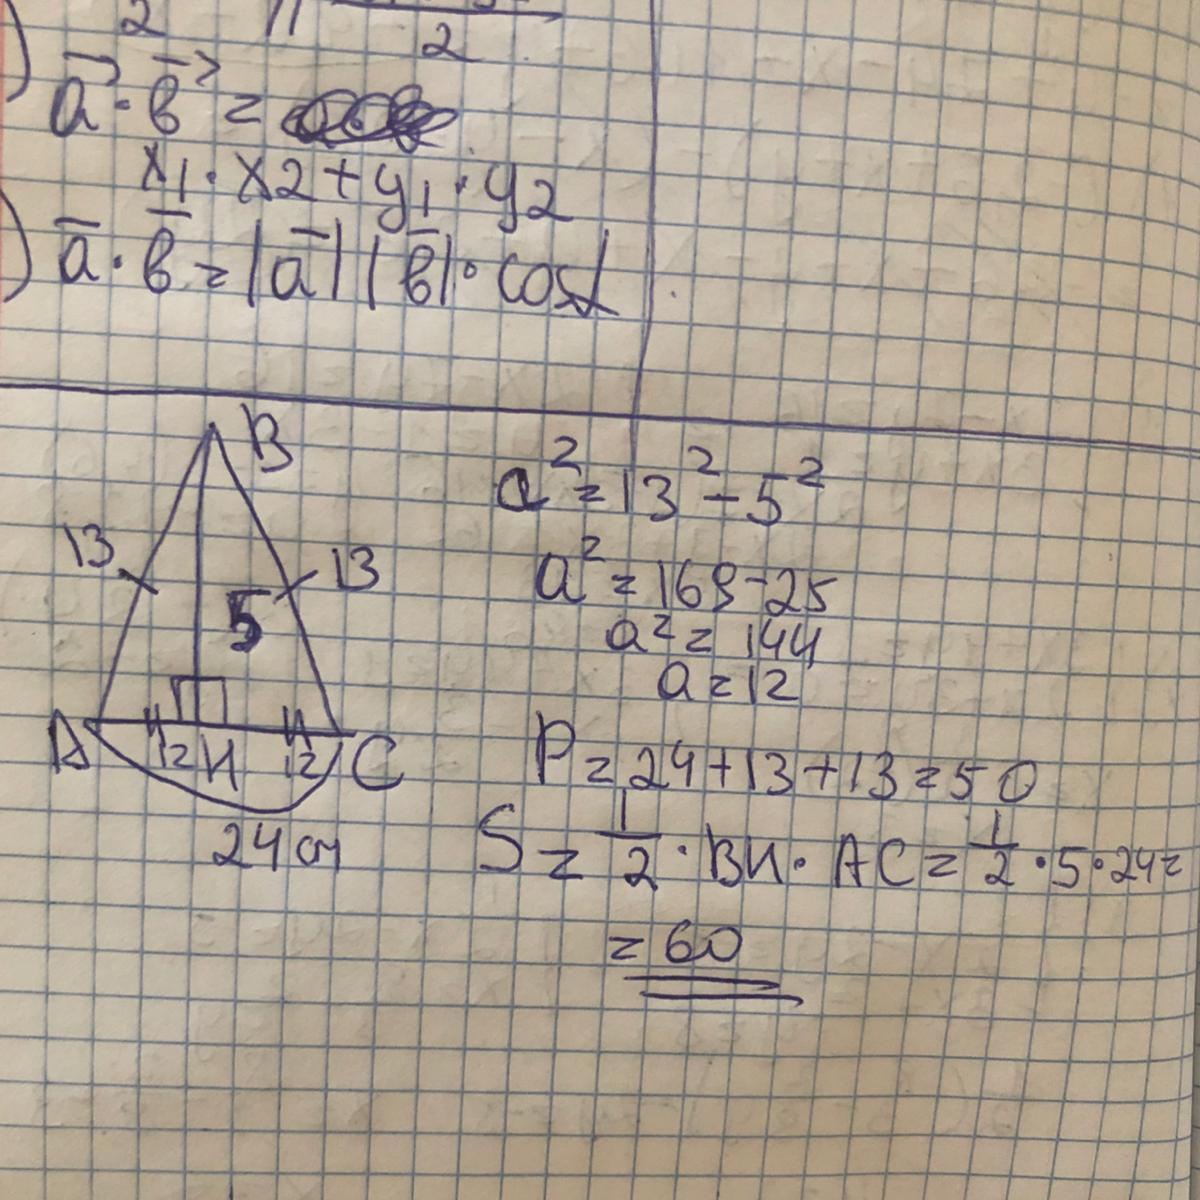 2
2
a · в =
x1 · x2 + y1 · y2
a · в = |a| |в| · cosα
B
13
13
5
A
12
H
12
C
24 см
a² = 13² - 5²
a² = 169 - 25
a² = 144
a = 12
P = 24 + 13 + 13 = 50
S = 1/2 · BH · AC = 1/2 · 5 · 24 =
= 60